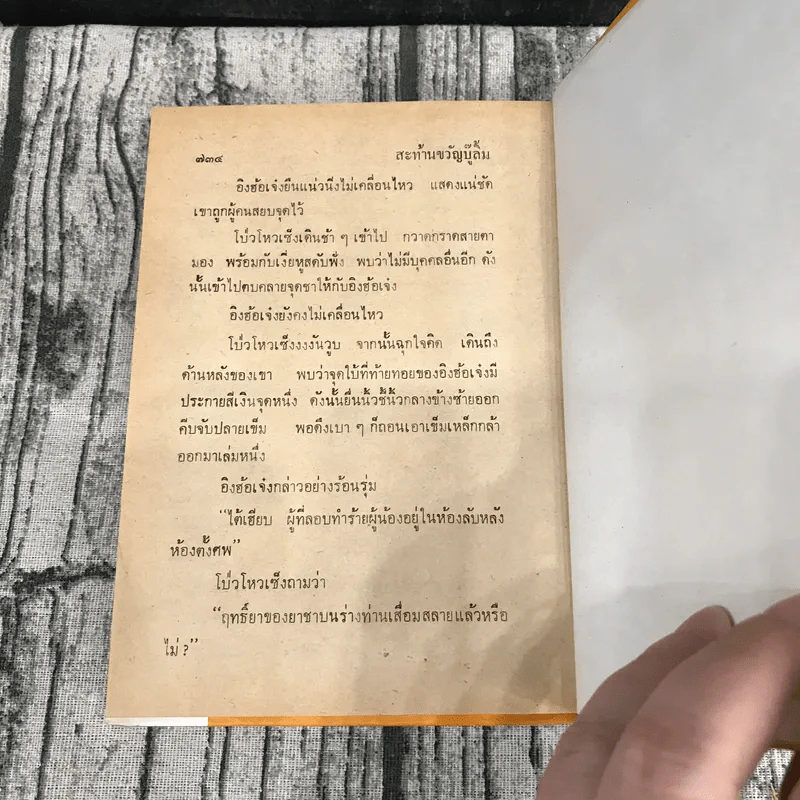 ๗๓๔ สะท้านขวัญบู๊ลิ้ม
อิงฮ้อเจ๋งยืนแน่วนิ่งไม่เคลื่อนไหว แสดงแน่ชัด
เขาถูกผู้คนสยบจุดไว้
โบ้วโหวเซ็งเดินช้า ๆ เข้าไป กวาดกราดสายตา
มอง พร้อมกับเงี่ยหูสดับฟัง พบว่าไม่มีบุคคลอื่นอีก ดัง
นั้นเข้าไปตบคลายจุดชาให้กับอิงฮ้อเจ๋ง
อิงฮ้อเจ๋งยังคงไม่เคลื่อนไหว
โบ้วโหวเซ็งงงงันวูบ จากนั้นฉุกใจคิด เดินถึง
ด้านหลังของเขา พบว่าจุดใบ้ที่ท้ายทอยของอิงฮ้อเจ๋งมี
ประกายสีเงินจุดหนึ่ง ดังนั้นยื่นนิ้วชี้นิ้วกลางข้างซ้ายออก
คีบจับปลายเข็ม พอดึงเบา ๆ ก็ถอนเอาเข็มเหล็กกล้า
ออกมาเล่มหนึ่ง
อิงฮ้อเจ๋งกล่าวอย่างร้อนรุ่ม
“ไต้เฮียบ ผู้ที่ลอบทำร้ายผู้น้องอยู่ในห้องลับหลัง
ห้องตั้งศพ”
โบ้วโหวเซ็งถามว่า
“ฤทธิ์ยาของยาชาบนร่างท่านเสื่อมสลายแล้วหรือ
ไม่ ?”